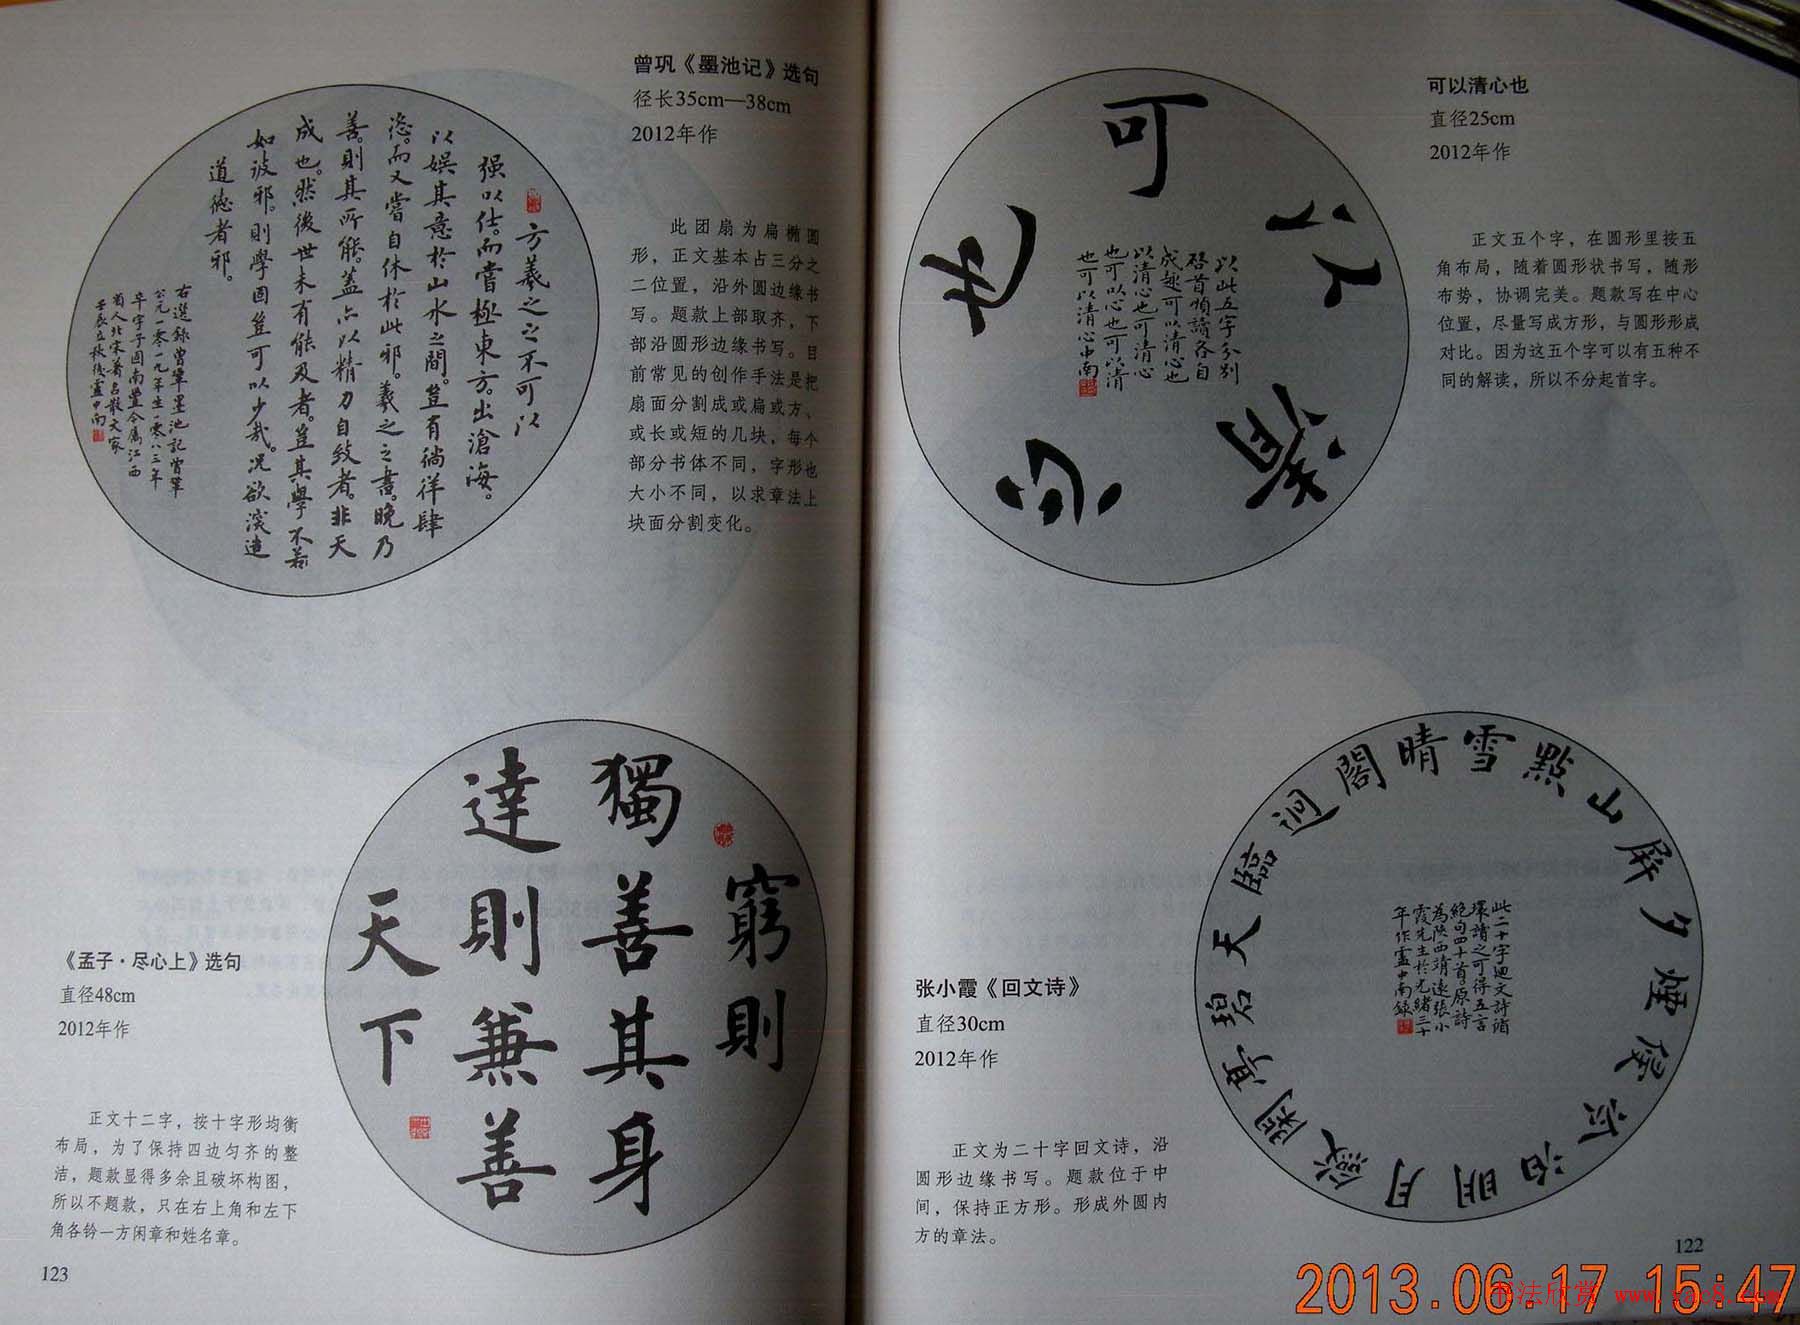 曾巩《墨池记》选句
径长35cm—38cm
2012年作
方羲之之不可以
强以仕。而嘗極東方。出滄海。
以娱其意於山水之間。豈有徜徉肆
恣。而又嘗自休於此邪。羲之之書。晚乃
善。則其所能。蓋亦以精力自致者。非天
成也。然後世未有能及者。豈其學不若
如彼邪。則學固豈可以少哉。况欲深造
道德者邪。
右選錄曾鞏墨池記曾鞏
公元一零一九年生一零八三年
卒字子固南豐今屬江西
省人北宋著名散文家
壬辰立秋後盧中南
此团扇为扁椭圆
形，正文基本占三分之
二位置，沿外圆边缘书
写。题款上部取齐，下
部沿圆形边缘书写。目
前常见的创作手法是把
扇面分割成或扁或方、
或长或短的几块，每个
部分书体不同，字形也
大小不同，以求章法上
块面分割变化。
窮則
獨善其身
達則兼善
天下
《孟子·尽心上》选句
直径48cm
2012年作
正文十二字，按十字形均衡
布局，为了保持四边匀齐的整
洁，题款显得多余且破坏构图，
所以不题款，只在右上角和左下
角各钤一方闲章和姓名章。
123
可以清心也
以此五字分别
啓首順讀各自
成趣可以清心也
以清心也可清心
也可以心也可以清
也可以清心中南
可以清心也
直径25cm
2012年作
正文五个字，在圆形里按五
角布局，随着圆形状书写，随形
布势，协调完美。题款写在中心
位置，尽量写成方形，与圆形形成
对比。因为这五个字可以有五种不
同的解读，所以不分起首字。
碧天臨迥閣晴雪點山屏夕煙侵冷泊明月斂閑亭
此二十字迴文詩循
環讀之可得五言
絕句四十首。原詩
為陝西靖遠張小
霞先生於光緒三十
年作盧中南録
张小霞《回文诗》
直径30cm
2012年作
正文为二十字回文诗，沿
圆形边缘书写。题款位于中
间，保持正方形。形成外圆内
方的章法。
122
2013.06.17 15:47
书法欣赏 www.szc8.com